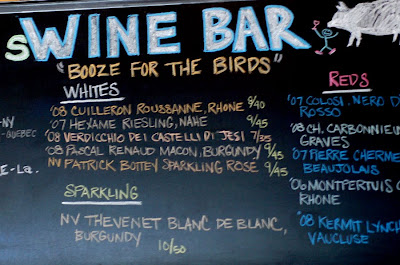 SWINE BAR
"BOOZE FOR THE BIRDS"
WHITES
'08 CUILLERON ROUSSANNE, RHONE 9/40
'07 HEXAME RIESLING, NAHE 9/45
'08 VERDICHIO DEI CASTELLI DI JESI 7/35
'08 PASCAL RENAUD MACON, BURGUNDY 9/45
NV PATRICK BOTTEY SPARKLING ROSE 9/45
SPARKLING
NV THEVENET BLANC DE BLANC,
BURGUNDY 10/50
REDS
'07 COLOSI, NERO D
ROSSO
'08 CH. CARBONNIE
GRAVES
'07 PIERRE CHERME
BEAUJOLAIS
'06 MONTPERTUIS C
RHONE
'08 KERMIT LYNCH
VAUCLUSE
-NY
-QUEBEC
E-LA.